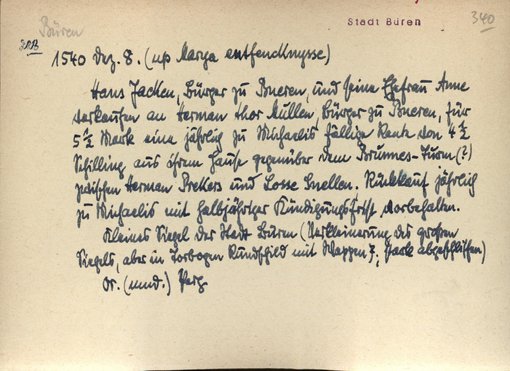 Büren
Stadt Büren
340
1540 Dez. 8. (up Marya entfencknysse)
Hans Jacken, Bürger zu Bueren, und seine Ehefrau Anne
verkaufen an Herman thor Mullen, Bürger zu Bueren, für
5 1/2 Mark eine jährlich zu Michaelis fällige Rente von 4 1/2
Schilling aus ihrem Hause gegenüber dem Brunnes-Turm (?)
zwischen Herman Prekers und Losse Snellen. Rückkauf jährlich
zu Michaelis mit halbjähriger Kündigungsfrist vorbehalten.
Kleines Siegel der Stadt Büren (Verkleinerung des großen
Siegels, aber in Torbogen Rundschild mit Wappen?, stark abgeschliffen)
Or. (mnd.) Perg.